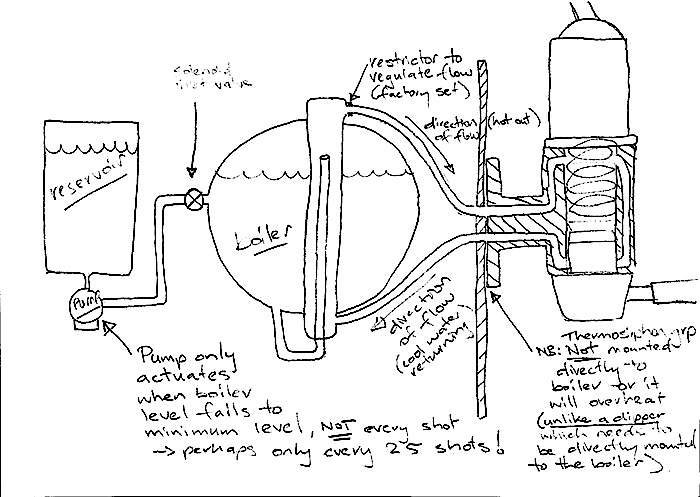 solenoid
inlet valve
restrictor to
regulate flow
(factory set)
direction (hot out)
of flow
reservoir
boiler
Pump
direction
of flow
(cool water
returning)
Pump only
actuates
when boiler
level falls to
minimum level, NOT every shot
→ perhaps only every 25 shots!
Thermosiphon grp
NB: NOT mounted
directly to
boiler or it
will overheat
(unlike a dipper
which needs to
be directly mounted
to the boiler)